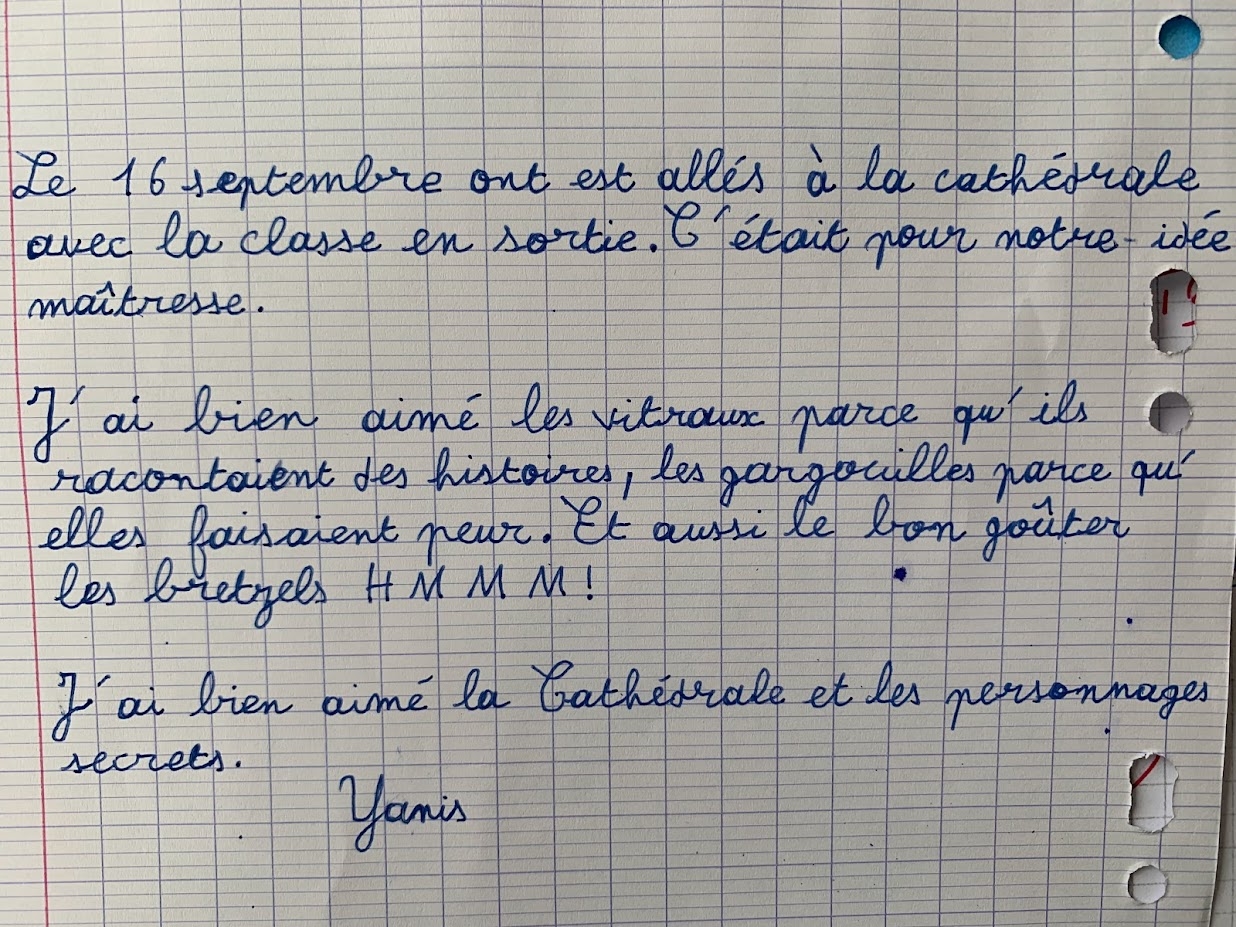 Le 16 septembre ont est allés à la cathédrale
avec la classe en sortie. C'était pour notre idée
maîtresse.
J'ai bien aimé les vitraux parce qu'ils
racontaient des histoires, les gargouilles parce qu'
elles faisaient peur. Et aussi le bon goûter
les bretzels HMMM!
J'ai bien aimé la Cathédrale et les personnages
secrets.
Yanis